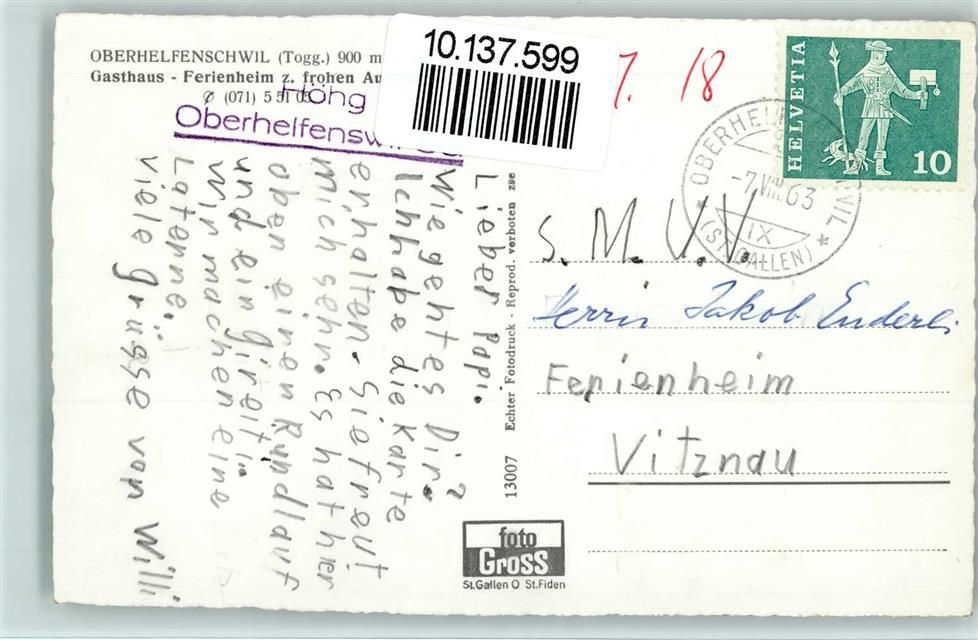 OBERHELFENSCHWIL (Togg.) 900 m
Gasthaus - Ferienheim z. frohen Au
✆ (071) 5 51 05
Höhg
Oberhelfensw
10.137.599
7. 18
HELVETIA
10
OBERHELFENSCHWIL
-7.VIII.63
IX
(ST. GALLEN)
Lieber Papi.
Wie geht es Dir?
Ich habe die Karte
erhalten. Sie freut
mich sehr. Es hat hier
oben einen Rundlauf
und ein Gireitli.
Wir machen eine
Laterne.
viele grüsse von Willi
13007 Echter Fotodruck - Reprod. verboten
S. M. U. V.
Herrn Jakob Enderli
Ferienheim
Vitznau
foto
Gross
St.Gallen O St.Fiden